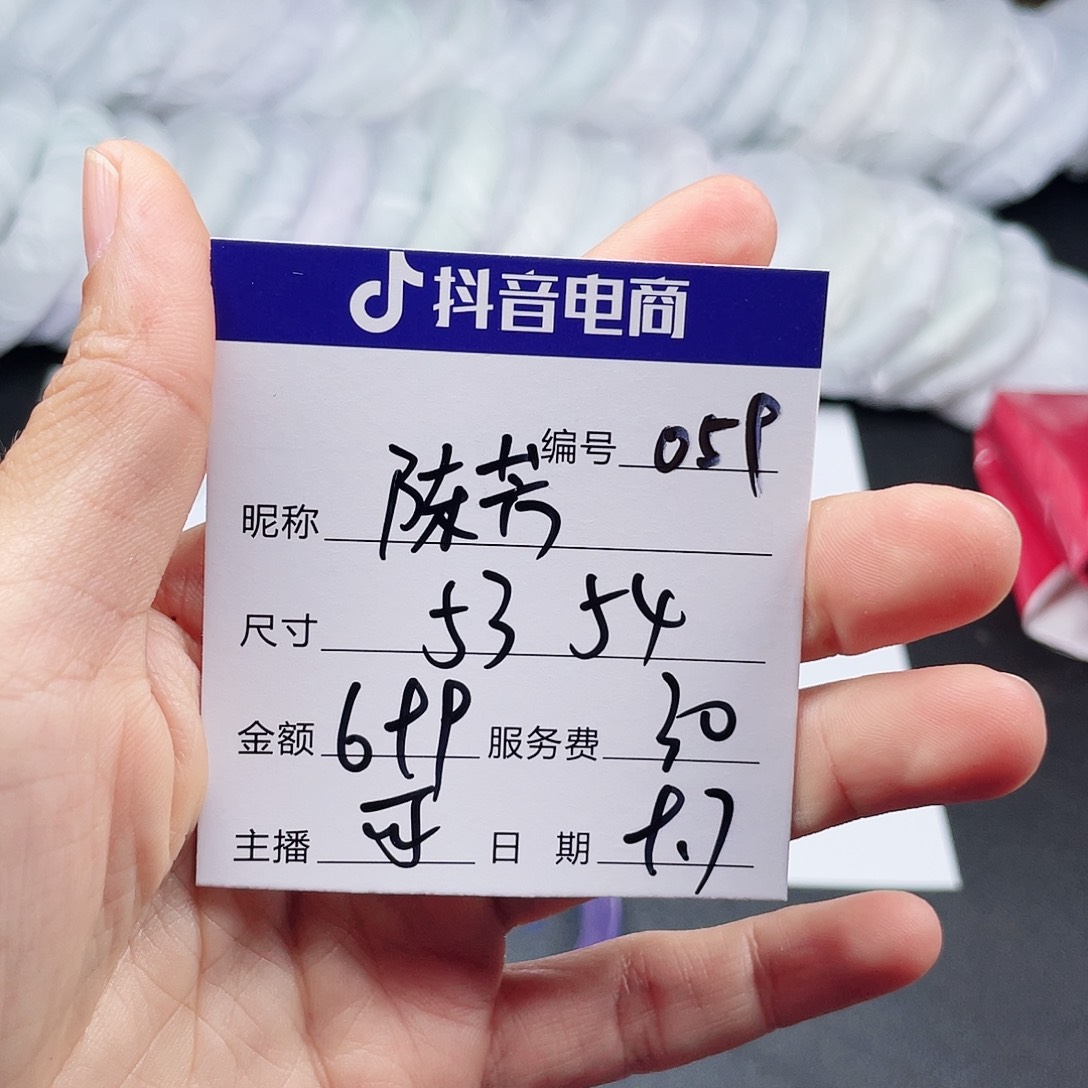 抖音电商
编号 059
昵称 陈芳
尺寸 53 54
金额 699 服务费 30
主播 日期 9.7